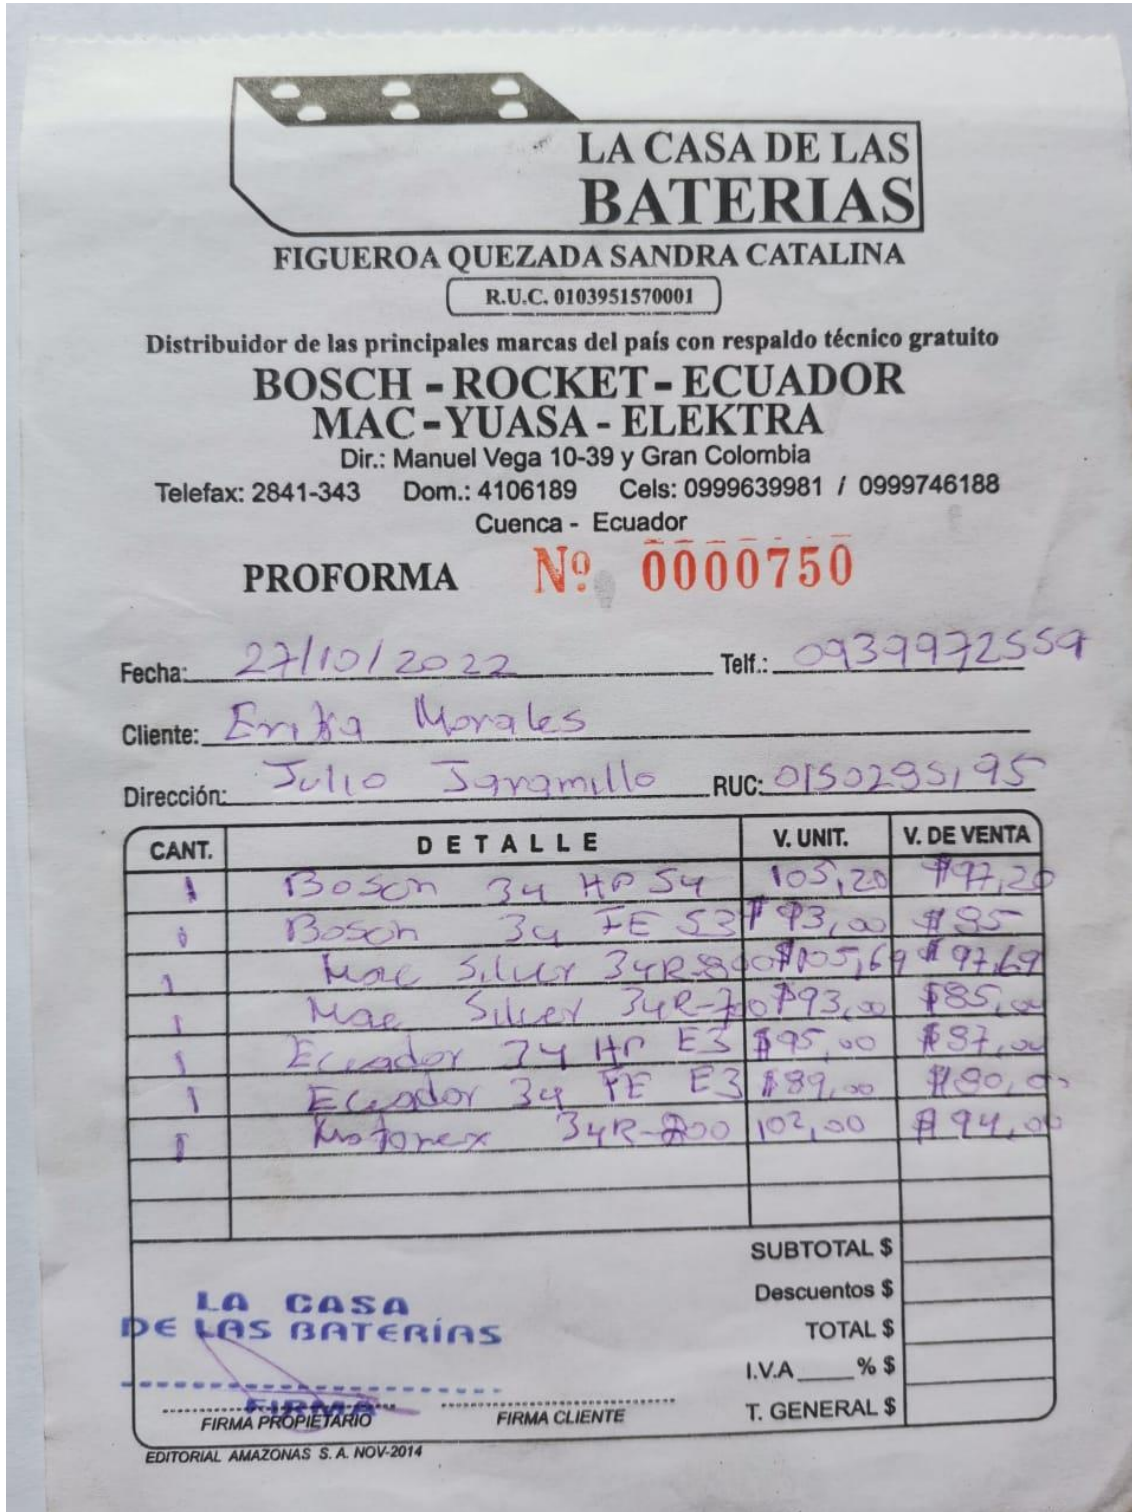 LA CASA DE LAS
BATERIAS
FIGUEROA QUEZADA SANDRA CATALINA
R.U.C. 0103951570001
Distribuidor de las principales marcas del país con respaldo técnico gratuito
BOSCH - ROCKET - ECUADOR
MAC - YUASA - ELEKTRA
Dir.: Manuel Vega 10-39 y Gran Colombia
Telefax: 2841-343 Dom.: 4106189 Cels: 0999639981 / 0999746188
Cuenca - Ecuador
PROFORMA Nº 0000750
Fecha: 27/10/2022 Telf.: 0939972559
Cliente: Erika Morales
Dirección: Julio Jaramillo RUC: 0150295195
CANT. DETALLE V. UNIT. V. DE VENTA
1 Bosch 34 HP S4 105,20 $97,20
Bosch 34 FE S3 $93,00 $85
1 Mac Silver 34R-800 $105,69 $97,69
1 Mac Silver 34R-700 $93,00 $85,00
1 Ecuador 34 HP E3 $95,00 $87,00
1 Ecuador 34 FE E3 $89,00 $80,00
1 34R-800 102,00 $94,00
SUBTOTAL $
Descuentos $
TOTAL $
I.V.A ____ % $
T. GENERAL $
LA CASA
DE LAS BATERÍAS
FIRMA
FIRMA PROPIETARIO FIRMA CLIENTE
EDITORIAL AMAZONAS S. A. NOV-2014